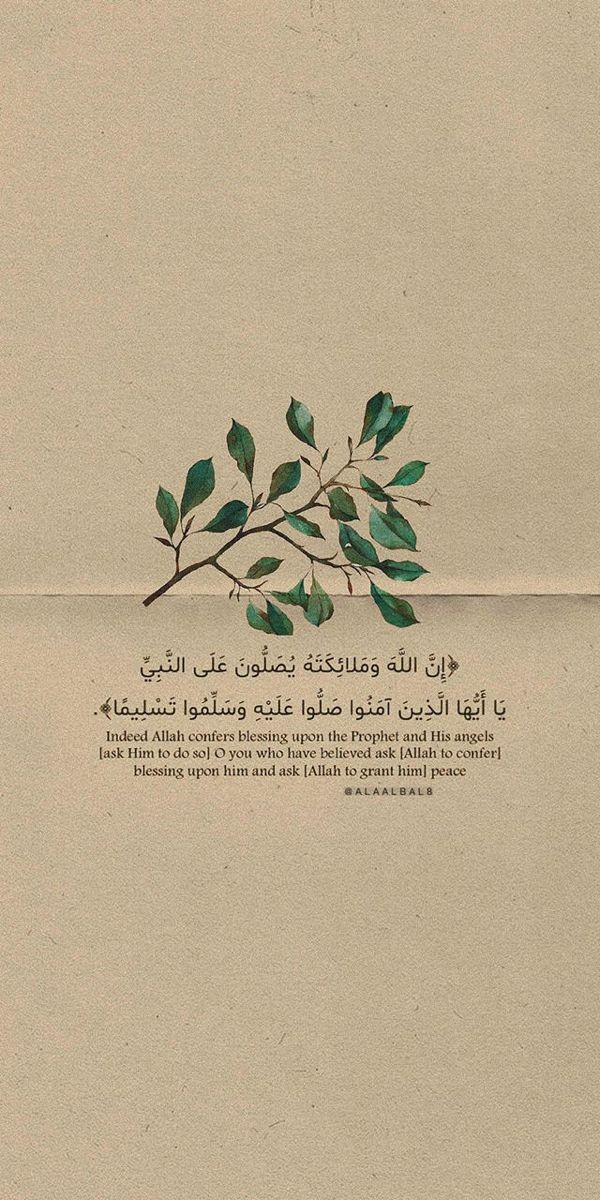 ﴿إِنَّ اللَّهَ وَمَلائِكَتَهُ يُصَلُّونَ عَلَى النَّبِيِّ
يَا أَيُّهَا الَّذِينَ آمَنُوا صَلُّوا عَلَيْهِ وَسَلِّمُوا تَسْلِيمًا﴾.
Indeed Allah confers blessing upon the Prophet and His angels
[ask Him to do so] O you who have believed ask [Allah to confer]
blessing upon him and ask [Allah to grant him] peace
@ALAALBAL8